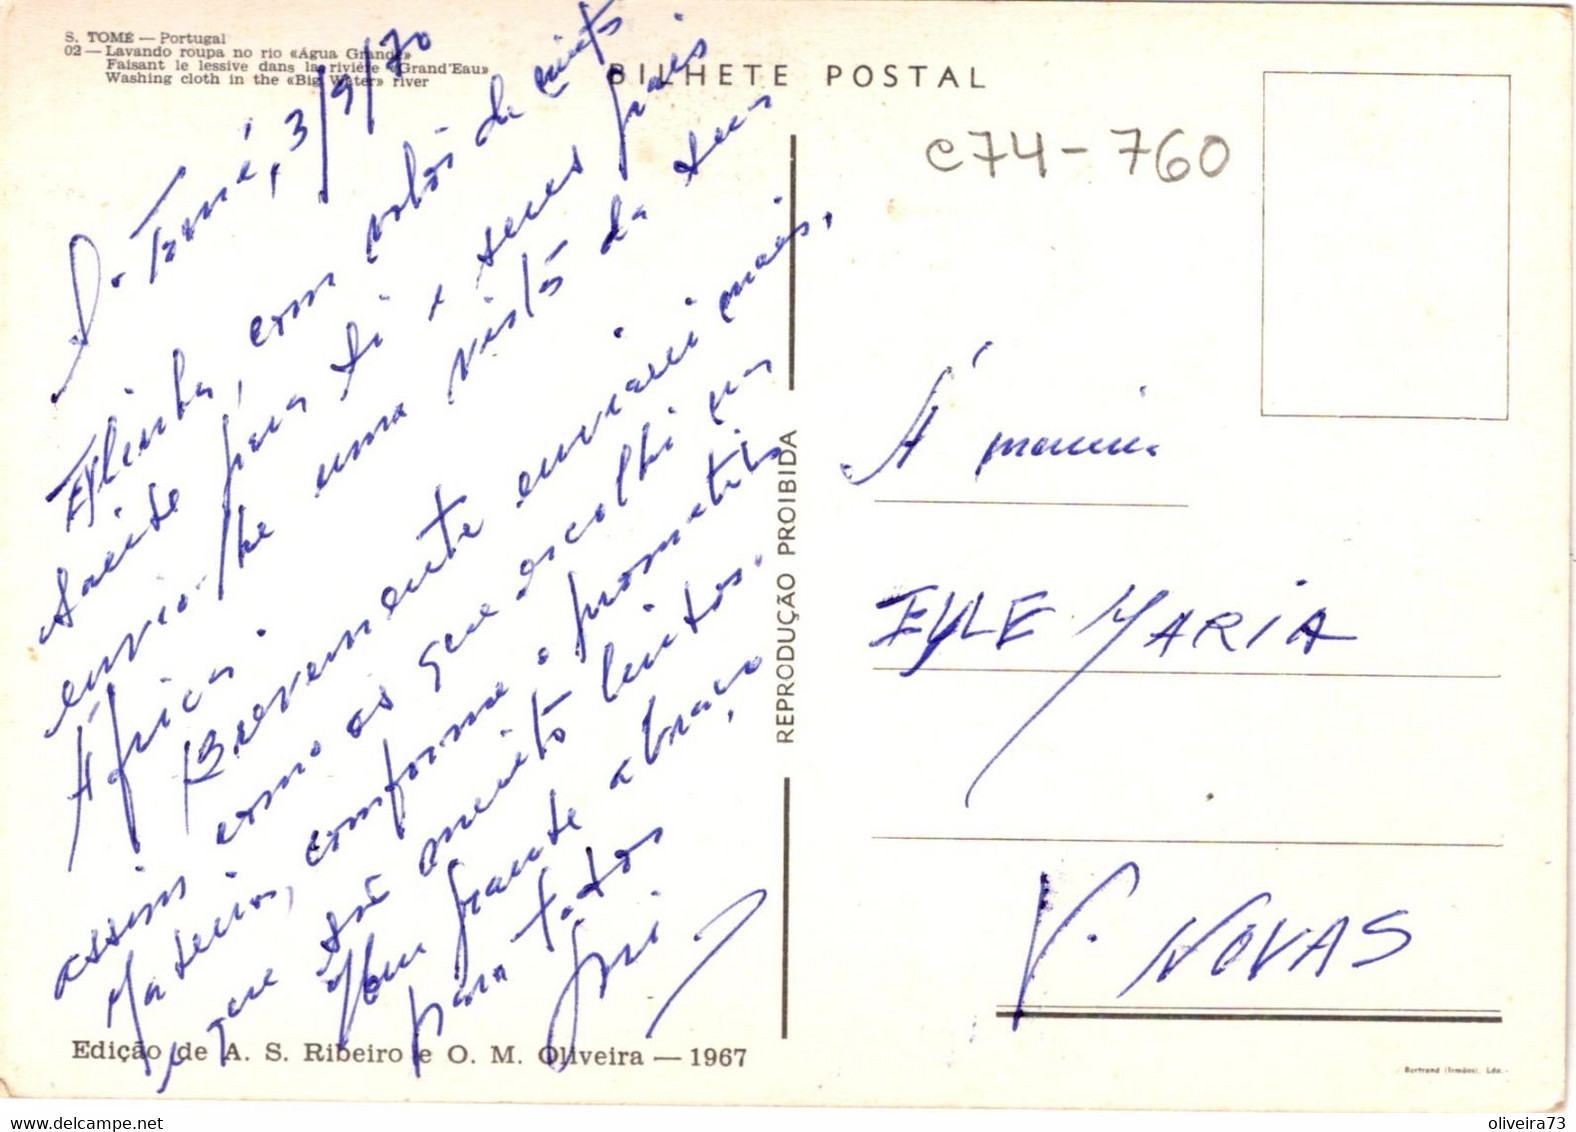 S. TOMÉ — Portugal
02 — Lavando roupa no rio «Água Grande»
Faisant le lessive dans la rivière «Grand'Eau»
Washing cloth in the «Big Water» river
BILHETE POSTAL
C74-760
S. Tomé, 3/9/70
com votos de
saúde para ti e seus pais
envio-lhe uma vista da
África.
Brevemente enviarei mais,
assim como as que escolhi
conforme prometi
e que são muito lindos.
Um grande abraço
para todos
À menina
EYLE MARIA
V. NOVAS
REPRODUÇÃO PROIBIDA
Edição de A. S. Ribeiro e O. M. Oliveira — 1967
Bertrand (Irmãos), Lda.
delcampe.net
oliveira73